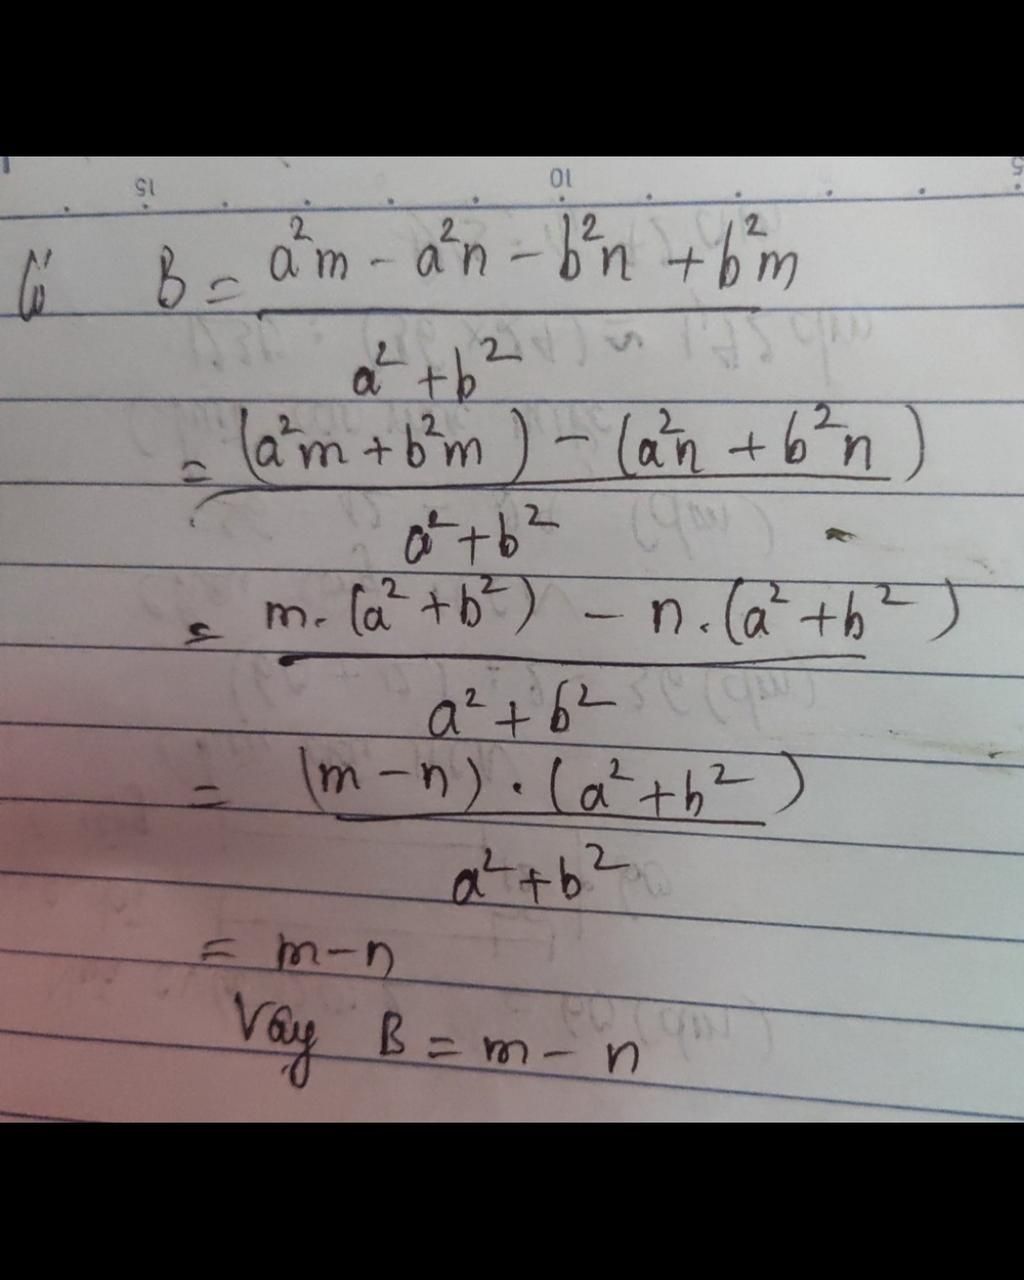 15 10 5
Có B = a²m - a²n - b²n + b²m
a² + b²
= (a²m + b²m) - (a²n + b²n)
a² + b²
= m. (a² + b²) - n. (a² + b²)
a² + b²
= (m - n) . (a² + b²)
a² + b²
= m - n
Vậy B = m - n